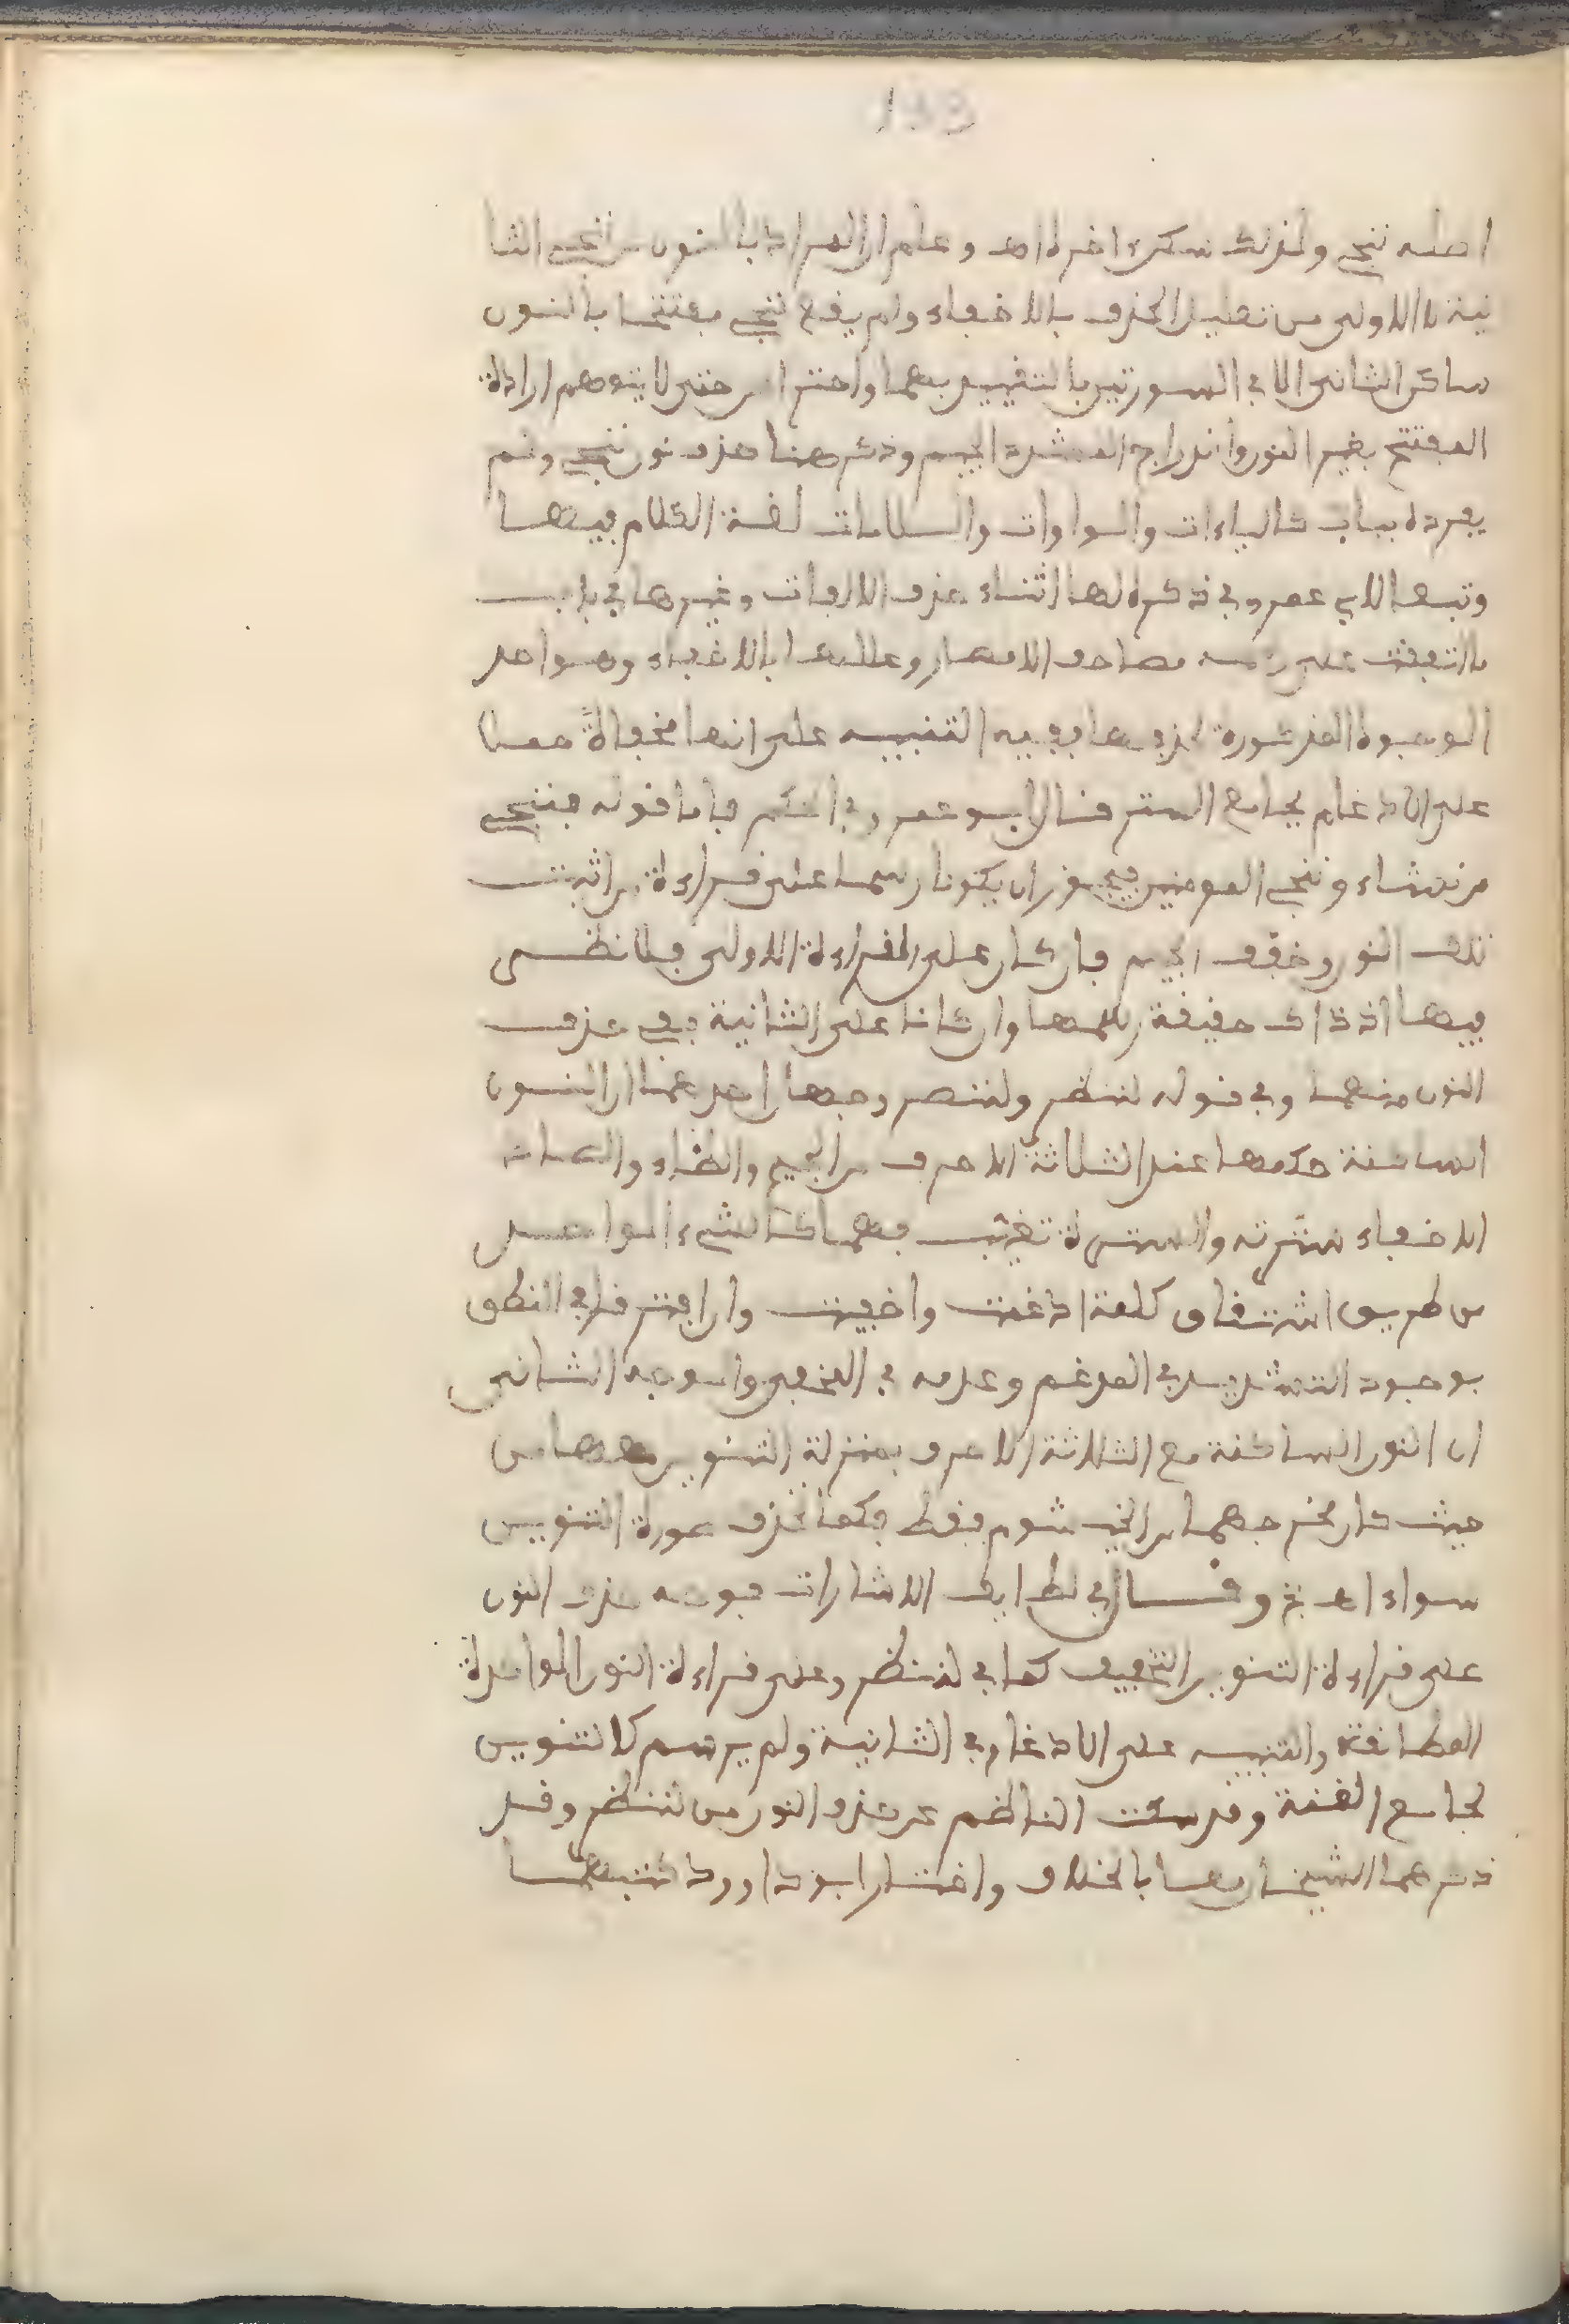 133
اصله ننجي ولذلك سكن اخره اهـ وعلم ان المراد بالنون من ننجي الثا
نية لا الاولى من تعليل الحذف بالاخفاء ولم يقع ننجي مفتتحا بالنون
ساكن الثاني الا في السورتين بالتقييد بهما واحترا حتى لا يتوهم ارادة
المفتتح بغير النون واندراج المشدد الجيم وذكر هنا حذف نون ننجي ولم
يفرده بباب كالياءات والواوات واللامات لقلة الكلام فيها
وتبعا لابي عمرو في ذكره لها اثناء حذف الالفات وغيرها في باب
ما اتفقت على رسمه مصاحف الامصار وعللها بالاخفاء وهو احد
الوجوه المذكورة لحذفها ففيه التنبيه على انها مخفاة حملا
على الادغام بجامع الستر قال ابو عمرو في المحكم فاما قوله فننجي
من نشاء وننجي المومنين فيجوز ان يكونا رسما على قراءة من اثبت
تلك النون وخفف الجيم فان كان على القراءة الاولى فلا نظر
فيها اذ ذاك حقيقة رسمها وان كانا على الثانية ففي حذف
النون منهما وفي قوله لننظر ولننصر وجهان احدهما ان النون
الساكنة حكمها عند الثلاثة الاحرف من الجيم والظاء والصاد
الاخفاء سترته والسترة تغيب فهما كالشيء الواحد
من طريق اشتقاق كلمة ادغمت واخفيت وان افترقا في النطق
بوجود التشديد في المدغم وعدمه في المخفى والوجه الثاني
ان النون الساكنة مع الثلاثة الاحرف بمنزلة التنوين معها من
حيث كان مخرجهما من الخيشوم فقط فكما تحذف صورة التنوين
سواء اهـ وقال في لطايف الاشارات فوجه حذف النون
على قراءة التنوين التخفيف كما في لننظر وعلى قراءة النون الواحدة
المطابقة والتنبيه على الادغام في الثانية ولم يرسم كالتنوين
بجامع الغنة وقد سكت الناظم عن حذف النون من لننظر وقد
ذكرهما الشيخان معا بالخلاف واختار ابو داوود كتبهما